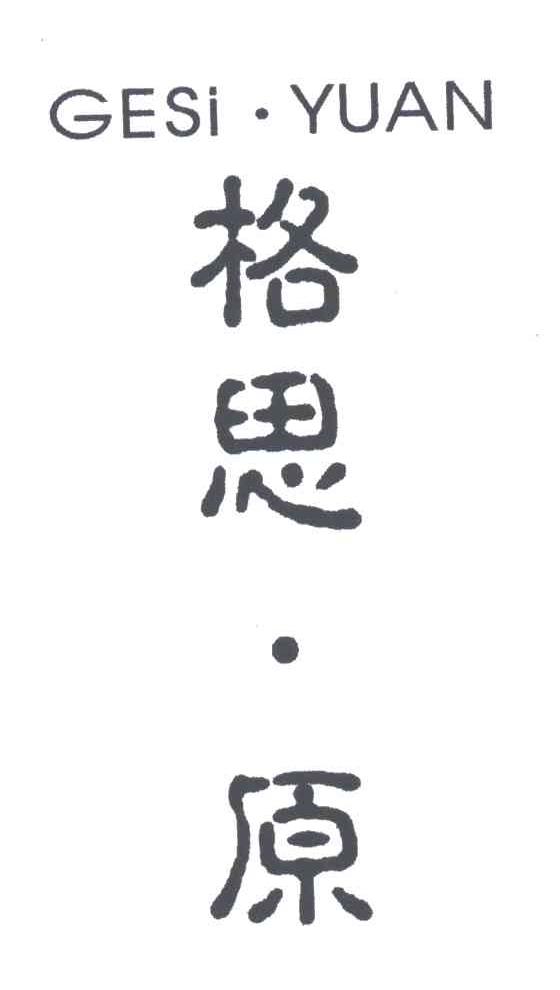 GESi · YUAN
格思·原